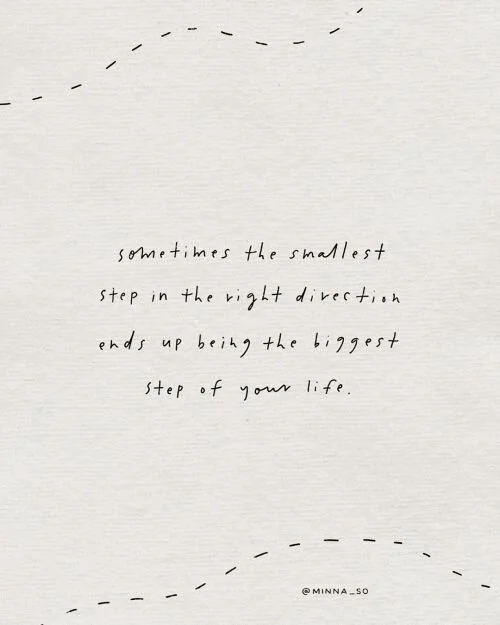 sometimes the smallest
step in the right direction
ends up being the biggest
step of your life.
@MINNA_SO